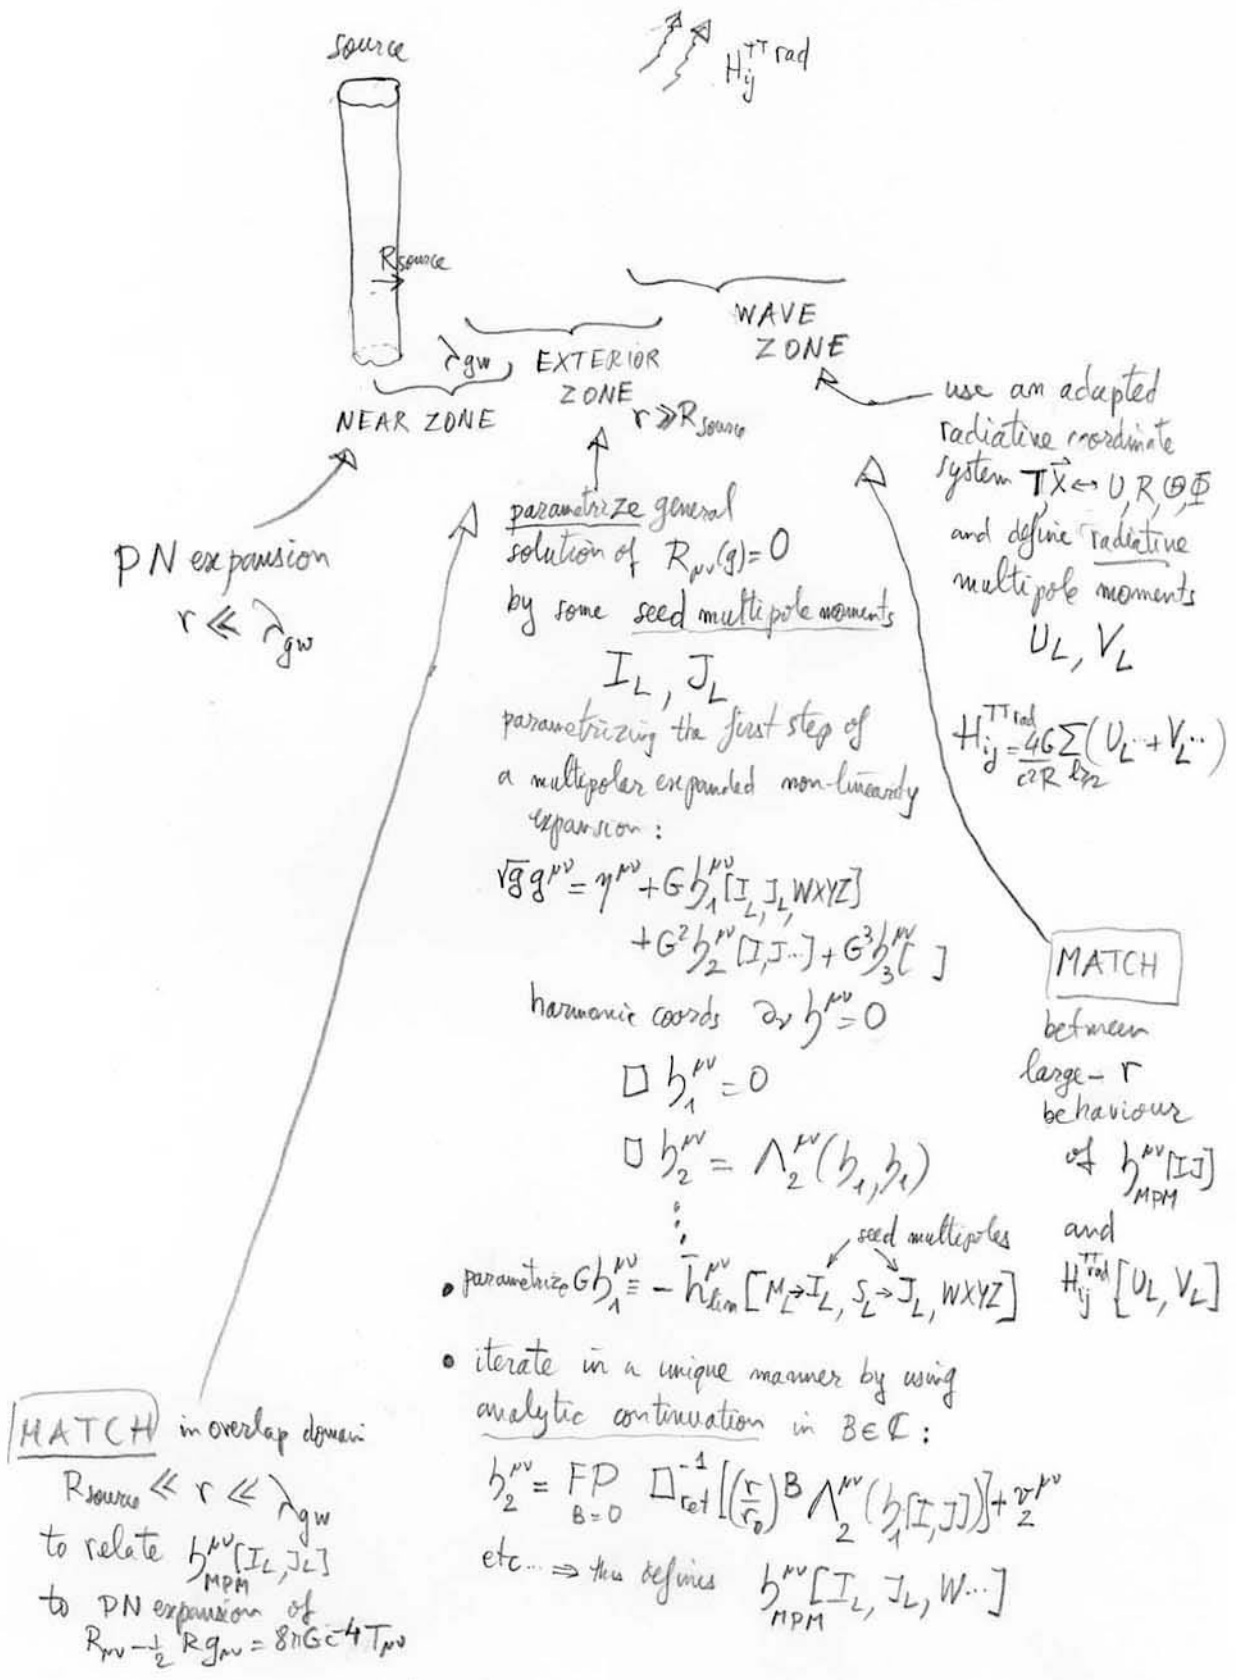 source
H_{ij}^{TT rad}
R_{source}
WAVE
ZONE
λ_{gw}
EXTERIOR
ZONE
r ≫ R_{source}
NEAR ZONE
PN expansion
r ≪ λ_{gw}
use an adapted
radiative coordinate
system T, \vec{X} ↔ U, R, Θ, Φ
and define radiative
multipole moments
U_L, V_L
H_{ij}^{TT rad} = \frac{4G}{c^2 R} \sum_{l≥2} (U_L ··· + V_L ···)
parametrize general
solution of R_{μν}(g) = 0
by some seed multipole moments
I_L, J_L
parametrizing the first step of
a multipolar expanded non-linearity
expansion :
√g g^{μν} = η^{μν} + G h_1^{μν} [I_L, J_L, WXYZ]
+ G^2 h_2^{μν} [I, J··] + G^3 h_3^{μν} [ ]
harmonic coords ∂_ν h^{μν} = 0
□ h_1^{μν} = 0
□ h_2^{μν} = Λ_2^{μν} (h_1, h_1)
⋮
seed multipoles
• parametrize G h_1^{μν} ≡ − \bar{h}_{lin}^{μν} [M_L → I_L, S_L → J_L, WXYZ]
• iterate in a unique manner by using
analytic continuation in B ∈ ℂ :
h_2^{μν} = FP_{B=0} □_{ret}^{-1} [(\frac{r}{r_0})^B Λ_2^{μν} (h_1[I, J])] + v_2^{μν}
etc... ⇒ this defines h_{MPM}^{μν} [I_L, J_L, W···]
MATCH
between
large-r
behaviour
of h_{MPM}^{μν} [IJ]
and
H_{ij}^{TT rad} [U_L, V_L]
MATCH in overlap domain
R_{source} ≪ r ≪ λ_{gw}
to relate h_{MPM}^{μν} [I_L, J_L]
to PN expansion of
R_{μν} − \frac{1}{2} R g_{μν} = 8πG c^{-4} T_{μν}